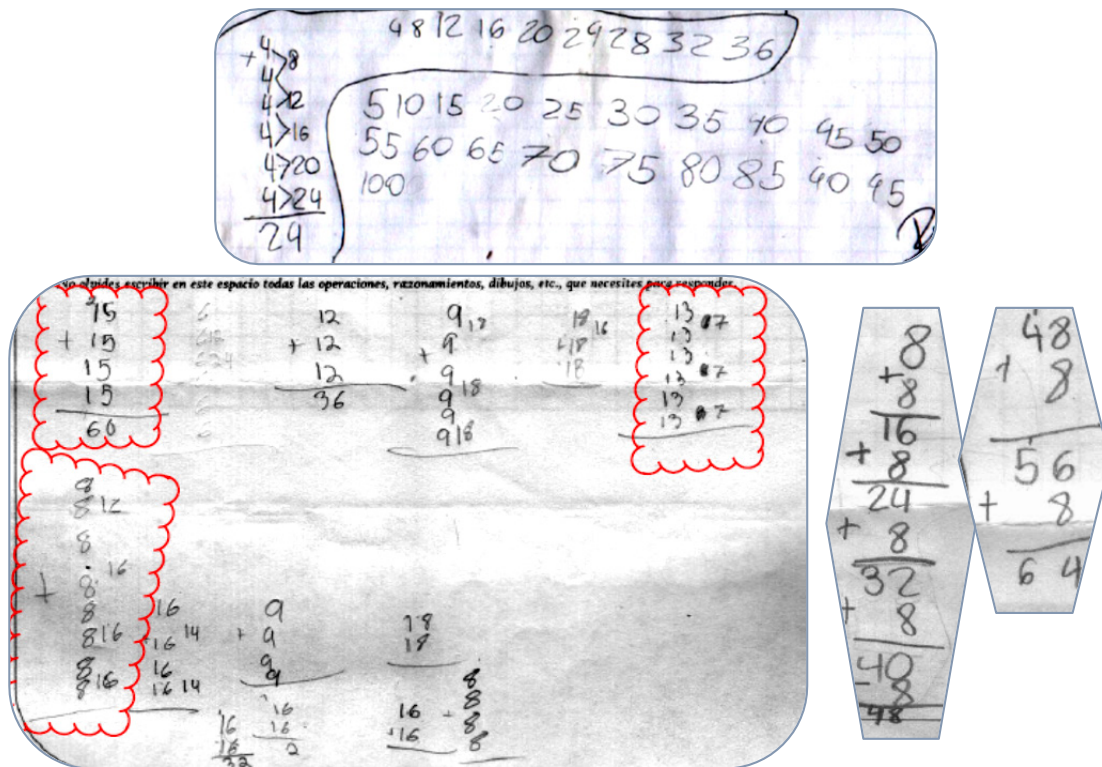 4 8 12 16 20 24 28 32 36
+ 4 > 8
4
4 > 12
4 > 16
4 > 20
4 > 24
24
5 10 15 20 25 30 35 40 45 50
55 60 65 70 75 80 85 90 95
100
olvides escribir en este espacio todas las operaciones, razonamientos, dibujos, etc., que necesites para responder.
15
+ 15
15
15
60
6
6 18
6 24
6
6
12
+ 12
12
36
9 18
+ 9
9 18
9
9
9 18
18 16
+18
18
13 7
13
13
13 7
13
13 7
8
8 12
8
16
+ 8
8
8 16
8
8 16
16
+ 16 14
16
16 14
9
+ 9
9
9
18
18
16
16
32
16
16
2
16
+16
8
+ 8
8
8
8
+ 8
16
+ 8
24
+ 8
32
+ 8
40
8
48
48
+ 8
56
+ 8
64